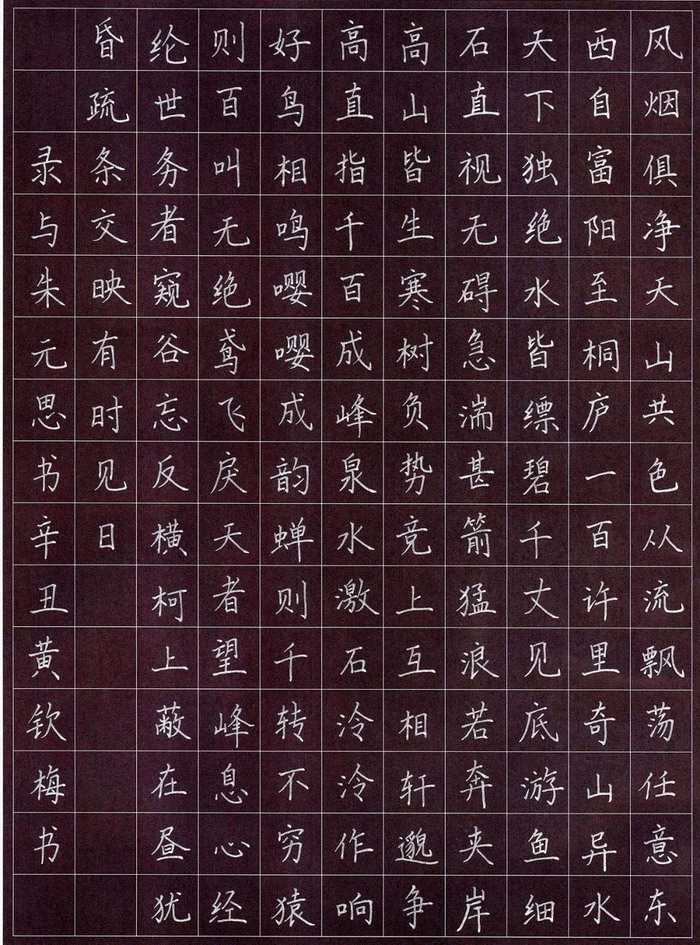 风烟俱净天山共色从流飘荡任意东
西自富阳至桐庐一百许里奇山异水
天下独绝水皆缥碧千丈见底游鱼细
石直视无碍急湍甚箭猛浪若奔夹岸
高山皆生寒树负势竞上互相轩邈争
高直指千百成峰泉水激石泠泠作响
好鸟相鸣嘤嘤成韵蝉则千转不穷猿
则百叫无绝鸢飞戾天者望峰息心经
纶世务者窥谷忘反横柯上蔽在昼犹
昏疏条交映有时见日
录与朱元思书辛丑黄钦梅书